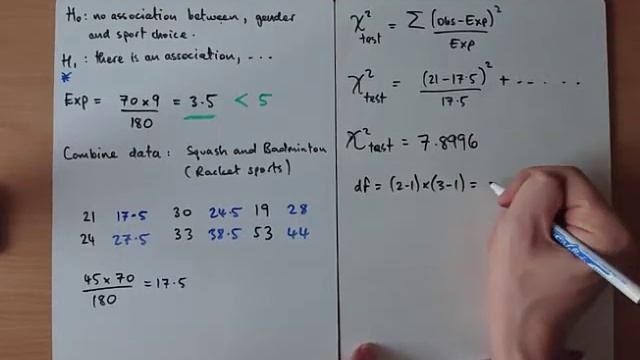 H₀: no association between, gender
and sport choice.
H₁: there is an association, ...
*
Exp = 70×9 / 180 = 3.5 < 5
Combine data: Squash and Badminton
(Racket sports)
21 17.5 30 24.5 19 28
24 27.5 33 38.5 53 44
45×70 / 180 = 17.5
χ² test = Σ (Obs-Exp)² / Exp
χ² test = (21-17.5)² / 17.5 + ......
χ² test = 7.8996
df = (2-1)×(3-1) =